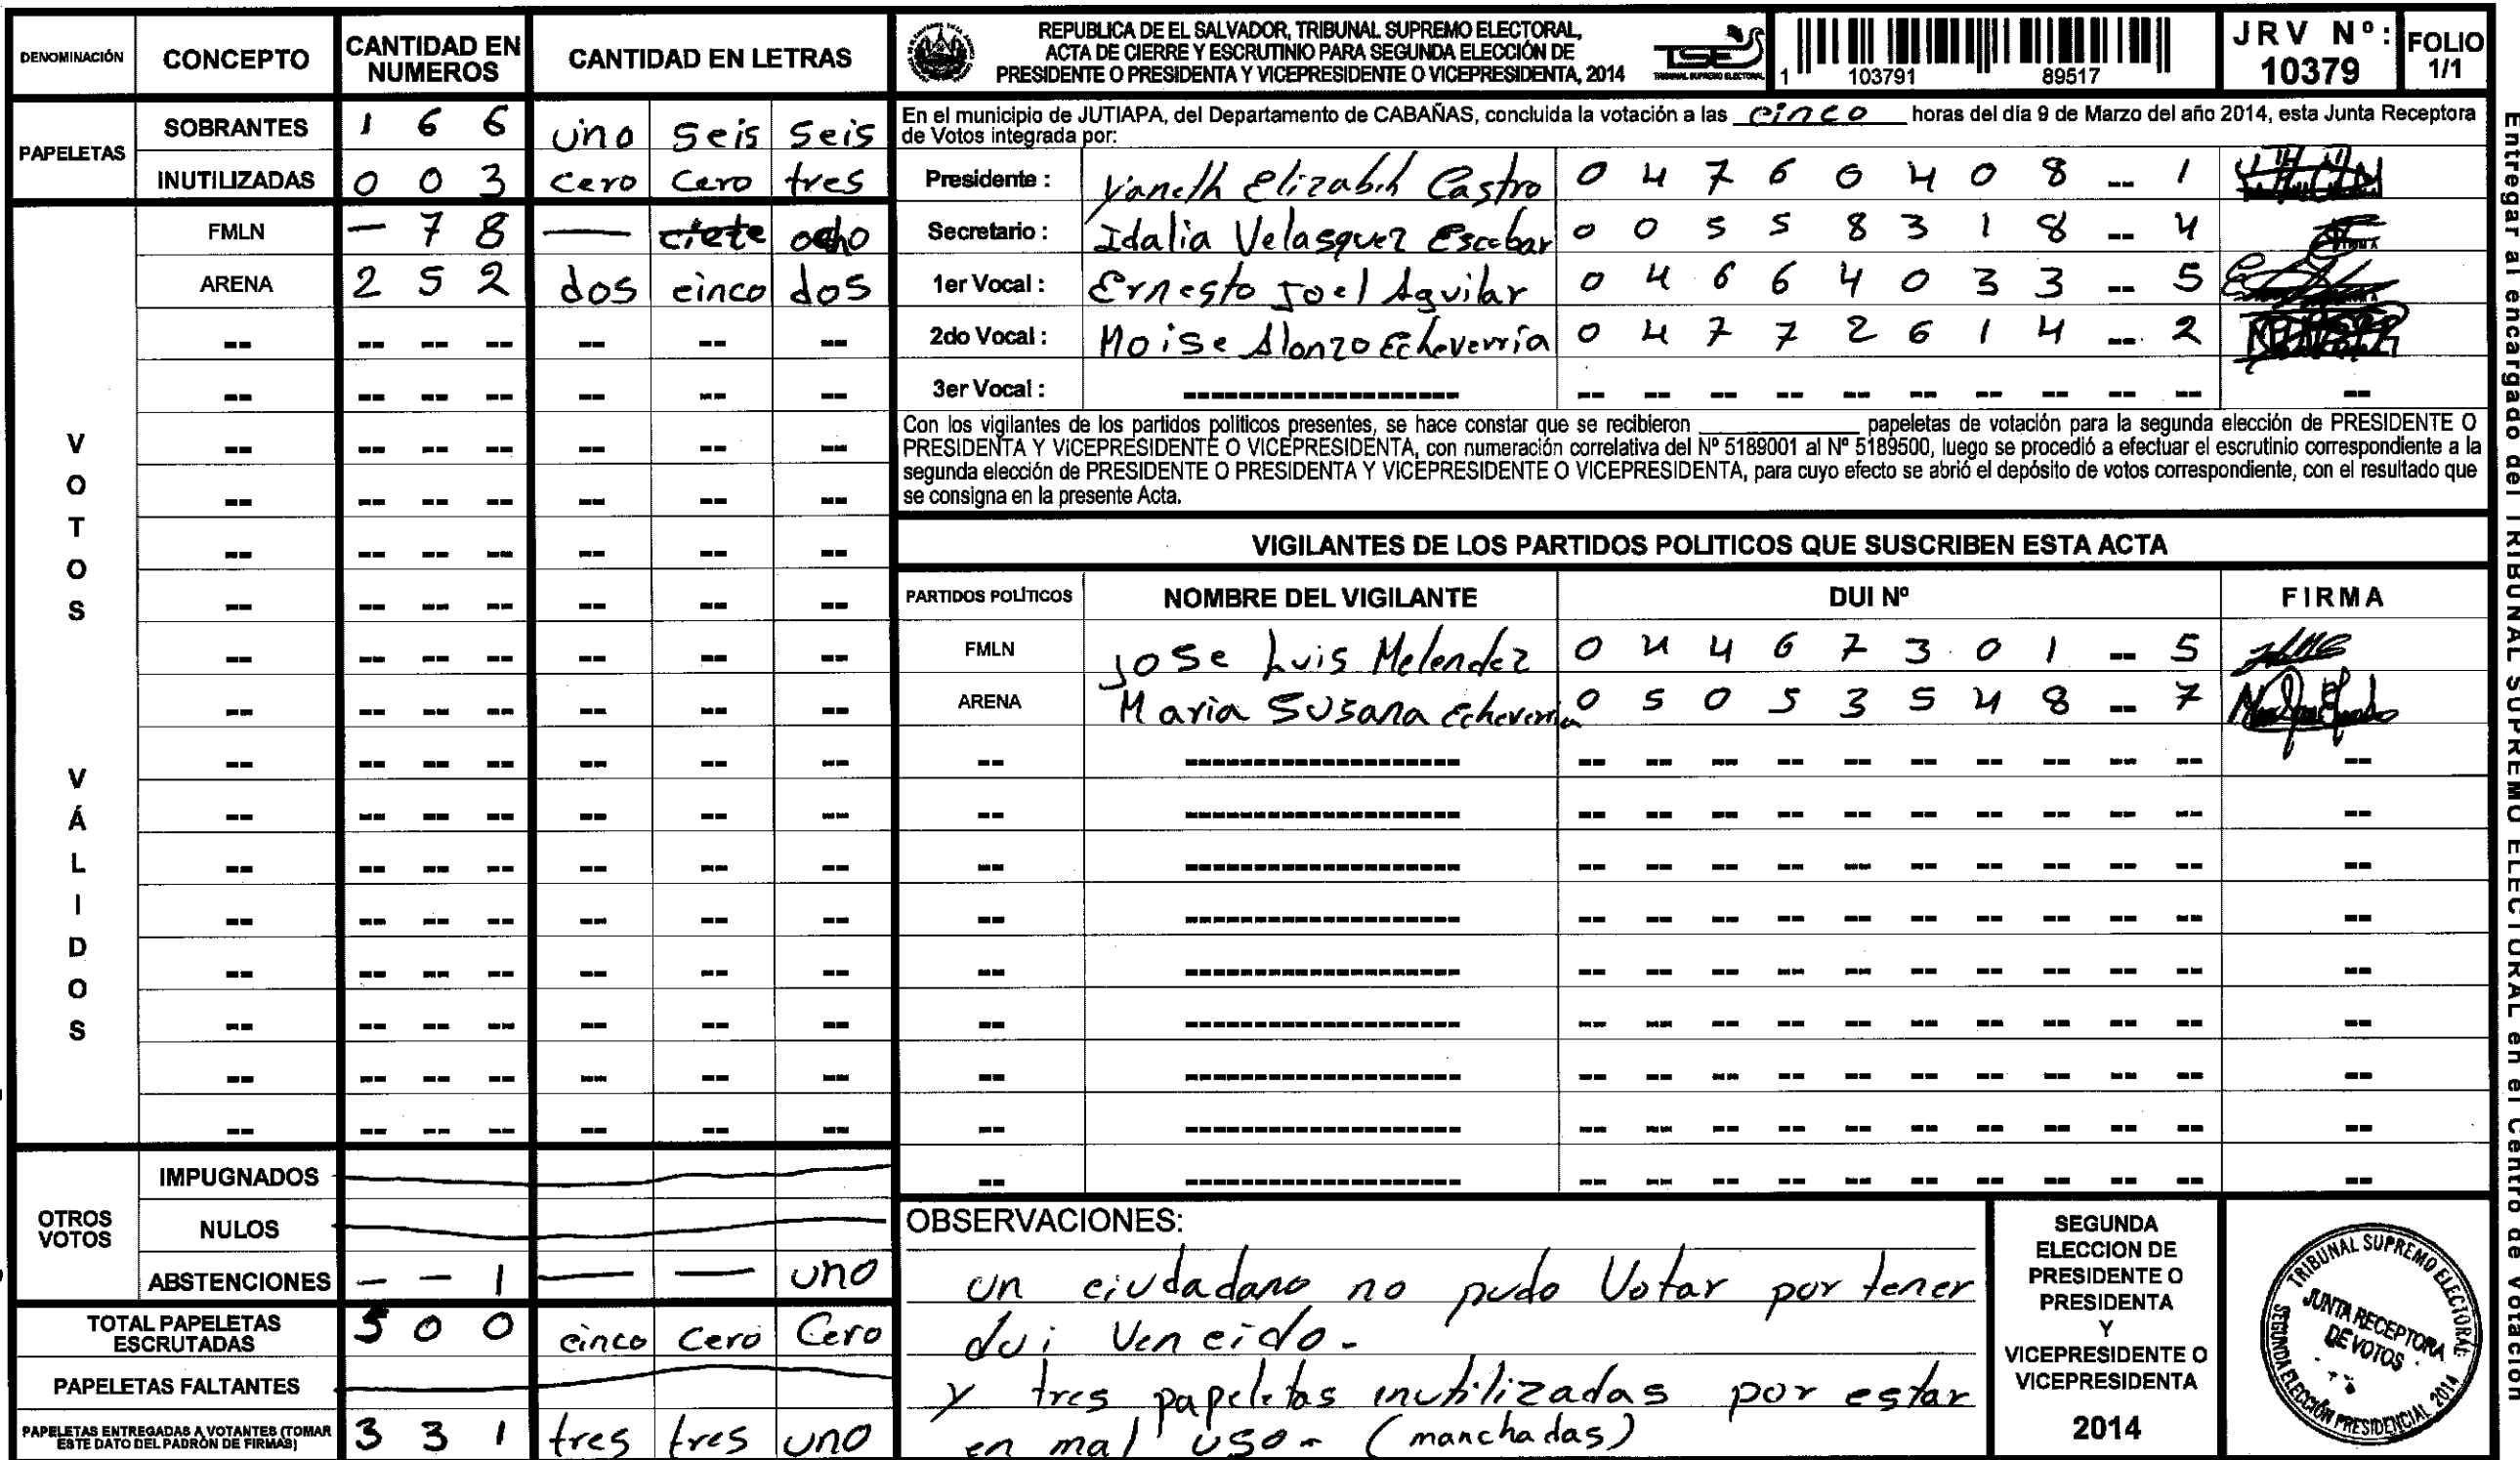 DENOMINACIÓN CONCEPTO CANTIDAD EN NUMEROS CANTIDAD EN LETRAS
PAPELETAS
SOBRANTES 1 6 6 uno seis seis
INUTILIZADAS 0 0 3 cero cero tres
VOTOS VÁLIDOS
FMLN — 7 8 — ciete ocho
ARENA 2 5 2 dos cinco dos
OTROS VOTOS
IMPUGNADOS
NULOS
ABSTENCIONES — — 1 — — uno
TOTAL PAPELETAS ESCRUTADAS 5 0 0 cinco cero Cero
PAPELETAS FALTANTES
PAPELETAS ENTREGADAS A VOTANTES (TOMAR ESTE DATO DEL PADRÓN DE FIRMAS) 3 3 1 tres tres uno
REPUBLICA DE EL SALVADOR, TRIBUNAL SUPREMO ELECTORAL,
ACTA DE CIERRE Y ESCRUTINIO PARA SEGUNDA ELECCIÓN DE
PRESIDENTE O PRESIDENTA Y VICEPRESIDENTE O VICEPRESIDENTA, 2014
TSE
TRIBUNAL SUPREMO ELECTORAL
1 103791 89517
JRV Nº: 10379
FOLIO 1/1
En el municipio de JUTIAPA, del Departamento de CABAÑAS, concluida la votación a las cinco horas del día 9 de Marzo del año 2014, esta Junta Receptora
de Votos integrada por:
Presidente : Yaneth Elizabth Castro 0 4 7 6 0 4 0 8 -- 1
Secretario : Idalia Velasquez Escobar 0 0 5 5 8 3 1 8 -- 4
1er Vocal : Ernesto Joel Aguilar 0 4 6 6 4 0 3 3 -- 5
2do Vocal : Moise Alonzo Echeverría 0 4 7 7 2 6 1 4 -- 2
3er Vocal :
Con los vigilantes de los partidos políticos presentes, se hace constar que se recibieron ____ papeletas de votación para la segunda elección de PRESIDENTE O
PRESIDENTA Y VICEPRESIDENTE O VICEPRESIDENTA, con numeración correlativa del Nº 5189001 al Nº 5189500, luego se procedió a efectuar el escrutinio correspondiente a la
segunda elección de PRESIDENTE O PRESIDENTA Y VICEPRESIDENTE O VICEPRESIDENTA, para cuyo efecto se abrió el depósito de votos correspondiente, con el resultado que
se consigna en la presente Acta.
VIGILANTES DE LOS PARTIDOS POLITICOS QUE SUSCRIBEN ESTA ACTA
PARTIDOS POLÍTICOS NOMBRE DEL VIGILANTE DUI Nº FIRMA
FMLN Jose Luis Melendez 0 4 4 6 7 3 0 1 -- 5
ARENA Maria Susana Echeverria 0 5 0 5 3 5 4 8 -- 7
OBSERVACIONES:
un ciudadano no pudo Votar por tener
dui Vencido-
y tres papeletas inutilizadas por estar
en mal uso- (manchadas)
SEGUNDA
ELECCION DE
PRESIDENTE O
PRESIDENTA
Y
VICEPRESIDENTE O
VICEPRESIDENTA
2014
TRIBUNAL SUPREMO ELECTORAL
JUNTA RECEPTORA
DE VOTOS
SEGUNDA ELECCIÓN PRESIDENCIAL 2014
Entregar al encargado del TRIBUNAL SUPREMO ELECTORAL en el Centro de Votación